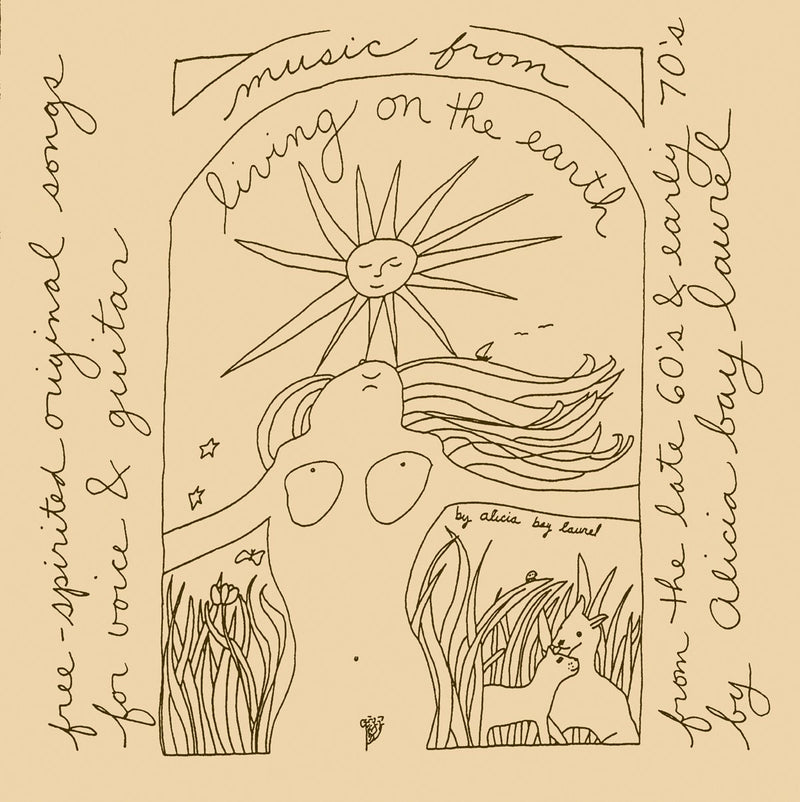 music from
living on the earth
by alicia bay laurel
free-spirited original songs
for voice & guitar
from the late 60's & early 70's
by alicia bay laurel